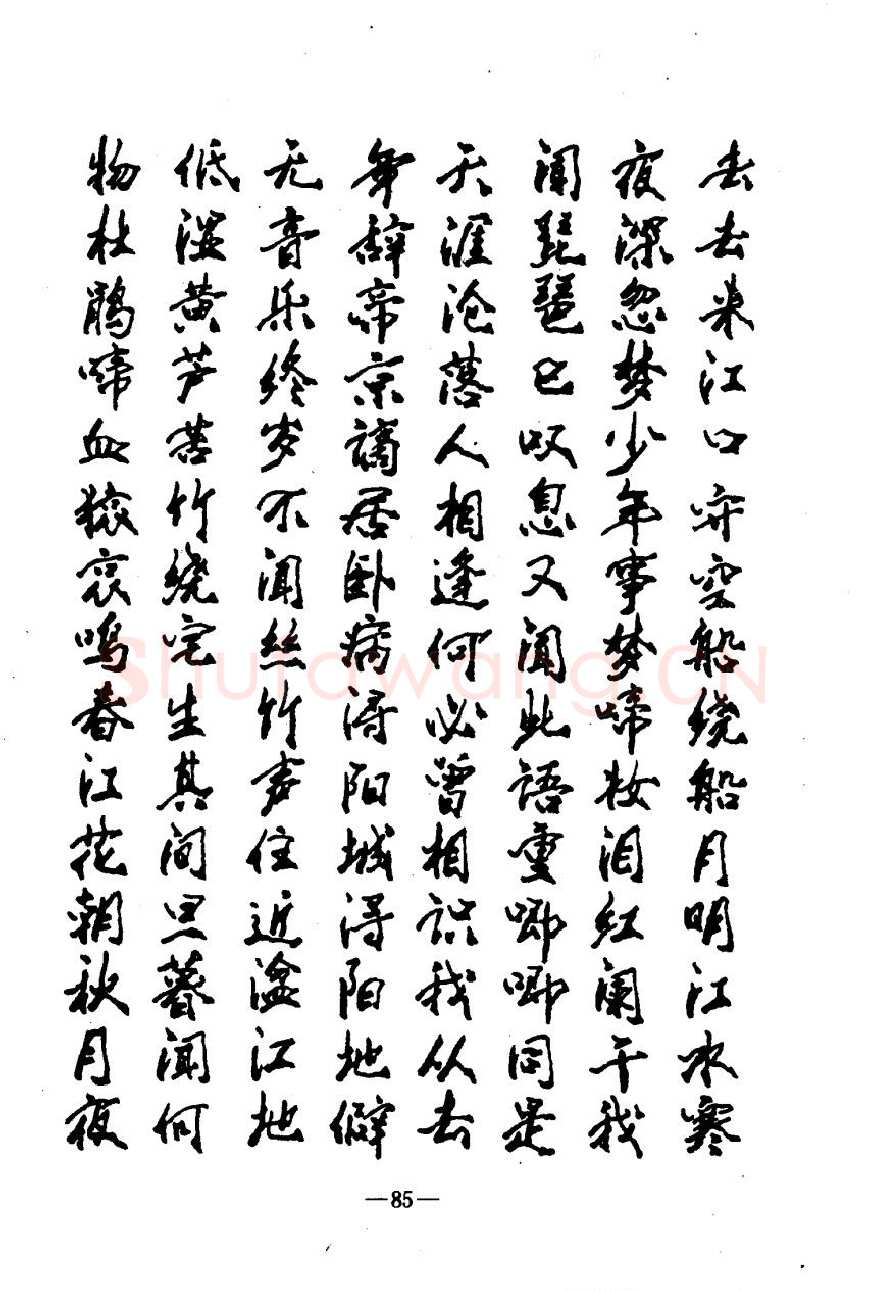 去去来江口守空船绕船月明江水寒
夜深忽梦少年事梦啼妆泪红阑干我
闻琵琶已叹息又闻此语重唧唧同是
天涯沦落人相逢何必曾相识我从去
年辞帝京谪居卧病浔阳城浔阳地僻
无音乐终岁不闻丝竹声住近湓江地
低湿黄芦苦竹绕宅生其间旦暮闻何
物杜鹃啼血猿哀鸣春江花朝秋月夜
Shufawang.CN
—85—